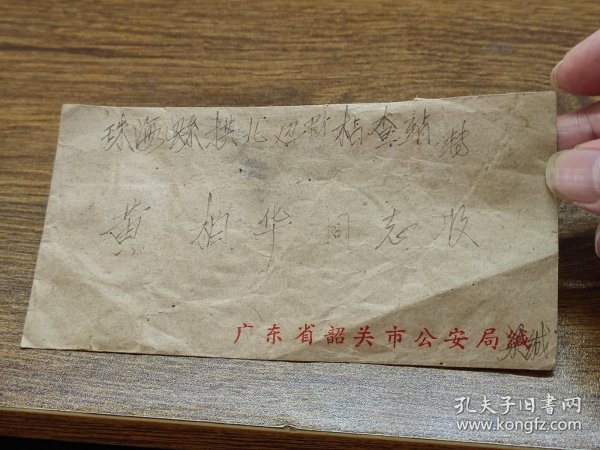 珠海縣拱北边防检查站 转
黄相华 同志收
广东省韶关市公安局
缄
孔夫子旧书网
www.kongfz.com